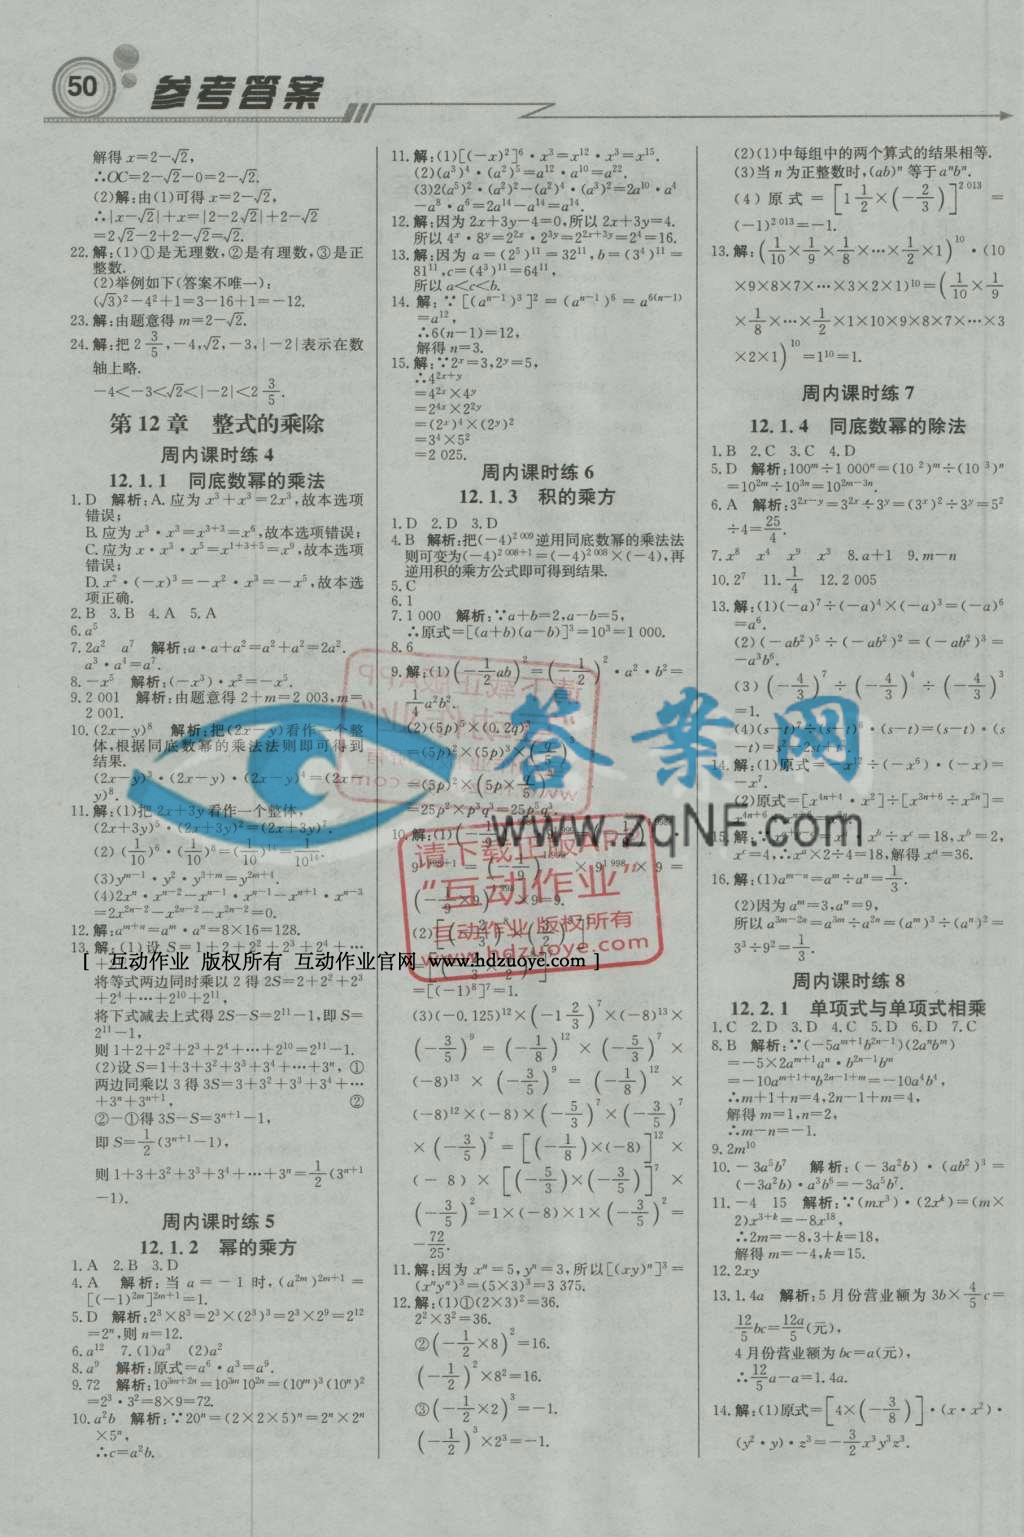 50 参考答案
解得 x=2-√2,
∴OC=2-√2-0=2-√2.
(2)解:由(1)可得 x=2-√2,
∴|x-√2|+x=|2-2√2|+2-√2
=2√2-2+2-√2=√2.
22.解:(1)①是无理数,②是有理数,③是正
整数.
(2)举例如下(答案不唯一):
(√3)²-4²+1=3-16+1=-12.
23.解:由题意得 m=2-√2.
24.解:把 2 3/5,-4,√2,-3,|-2|表示在数
轴上略.
-4<-3<√2<|-2|<2 3/5.
第 12 章 整式的乘除
周内课时练 4
12.1.1 同底数幂的乘法
1.D 解析:A.应为 x³+x³=2x³,故本选项
错误;
B.应为 x³·x³=x³⁺³=x⁶,故本选项错误;
C.应为 x·x³·x⁵=x¹⁺³⁺⁵=x⁹,故本选项
错误;
D.x²·(-x)³=-x²·x³=-x⁵,故本选
项正确.
2.B 3.B 4.A 5.A
6.a⁵
7.2a² a⁷ 解析:a·a+a²=a²+a²=2a².
a³·a⁴=a⁷.
8.-x⁵ 解析:(-x³)·x²=-x⁵.
9.2 001 解析:由题意得 2+m=2 003,m=
2 001.
10.(2x-y)⁸ 解析:把(2x-y)看作一个整
体,根据同底数幂的乘法法则即可得到
结果.
(2x-y)³·(2x-y)·(2x-y)⁴=(2x-
y)⁸.
11.解:(1)把 2x+3y 看作一个整体,
(2x+3y)⁵·(2x+3y)²=(2x+3y)⁷.
(2)(1/10)⁶·(1/10)⁸=(1/10)¹⁴=1/10¹⁴.
(3)yᵐ⁻¹·y²·y³⁺ᵐ=y²ᵐ⁺⁴.
(4)2xⁿ·xⁿ⁻²-xⁿ⁻¹·xⁿ⁻¹-xⁿ⁺¹·xⁿ⁻³
=2x²ⁿ⁻²-x²ⁿ⁻²-x²ⁿ⁻²=0.
12.解:aᵐ⁺ⁿ=aᵐ·aⁿ=8×16=128.
13.解:(1)设 S=1+2+2²+2³+2⁴+…
[ 互动作业 版权所有 互动作业官网 www.hdzuoye.com ]
将等式两边同时乘以 2 得 2S=2+2²+2³
+2⁴+…+2¹⁰+2¹¹,
将下式减去上式得 2S-S=2¹¹-1,即 S=
2¹¹-1,
则 1+2+2²+2³+2⁴+…+2¹⁰=2¹¹-1.
(2)设 S=1+3+3²+3³+3⁴+…+3ⁿ,①
两边同乘以 3 得 3S=3+3²+3³+3⁴+…
+3ⁿ+3ⁿ⁺¹, ②
②-①得 3S-S=3ⁿ⁺¹-1,
即 S=1/2(3ⁿ⁺¹-1),
则 1+3+3²+3³+3⁴+…+3ⁿ=1/2(3ⁿ⁺¹
-1).
周内课时练 5
12.1.2 幂的乘方
1.A 2.B 3.D
4.A 解析:当 a=-1 时,(a²ᵐ)²ᵐ⁺¹=
[(-1)²ᵐ]²ᵐ⁺¹=1.
5.D 解析:2³×8³=2³×(2³)³=2³×2⁹=2¹²
=2ⁿ,则 n=12.
6.a¹² 7.(1)a³ (2)a²
8.a⁹ 解析:原式=a⁶·a³=a⁹.
9.72 解析:10³ᵐ⁺²ⁿ=10³ᵐ10²ⁿ=(10ᵐ)³(10ⁿ)²
=2³·3²=8×9=72.
10.a²b 解析:∵20ⁿ=(2×2×5)ⁿ=2ⁿ×2ⁿ
×5ⁿ,
∴c=a²b.
11.解:(1)[(-x)²]⁶·x³=x¹²·x³=x¹⁵.
(2)(a³)⁴·(a²)⁵=a¹²·a¹⁰=a²².
(3)2(a⁵)²·(a²)²-(a²)⁴·(a³)²=2a¹⁰·a⁴
-a⁸·a⁶=2a¹⁴-a¹⁴=a¹⁴.
12.解:因为 2x+3y-4=0,所以 2x+3y=4.
所以 4ˣ·8ʸ=2²ˣ·2³ʸ=2²ˣ⁺³ʸ=2⁴=16.
13.解:因为 a=(2⁵)¹¹=32¹¹,b=(3⁴)¹¹=
81¹¹,c=(4³)¹¹=64¹¹,
所以 a<c<b.
14.解:∵[(aⁿ⁻¹)³]²=(aⁿ⁻¹)⁶=a⁶⁽ⁿ⁻¹⁾
=a¹²,
∴6(n-1)=12,
解得 n=3.
15.解:∵2ˣ=3,2ʸ=5,
∴4²ˣ⁺ʸ
=4²ˣ×4ʸ
=2⁴ˣ×2²ʸ
=(2ˣ)⁴×(2ʸ)²
=3⁴×5²
=2 025.
周内课时练 6
12.1.3 积的乘方
1.D 2.D 3.D
4.B 解析:把(-4)²⁰⁰⁹逆用同底数幂的乘法法
则可变为(-4)²⁰⁰⁸⁺¹=(-4)²⁰⁰⁸×(-4),再
逆用积的乘方公式即可得到结果.
5.C
6.1
7.1 000 解析:∵a+b=2,a-b=5,
∴原式=[(a+b)(a-b)]³=10³=1 000.
8.6
9.解:(1)(-1/2ab)²=(-1/2)²·a²·b²=
1/4a²b².
(2)(5p)⁵×(0.2q)³
=(5p)²×(5p)³×(q/5)³
=(5p)²×(5p×q/5)³
=25p²×p³q³=25p⁵q³.
10.解:(1)
×9=9.
(2)
=[(-1)⁸]⁷=1.
(3)(-0.125)¹²×(-1 2/3)⁷×(-8)¹³×
(-3/5)⁹=(-1/8)¹²×(-5/3)⁷×
(-8)¹³×(-3/5)⁹=(-1/8)¹²×
(-8)¹²×(-8)×(-5/3)⁷×(-3/5)⁷
×(-3/5)²=[(-1/8)×(-8)]¹²×
(-8)×[(-5/3)×(-3/5)]⁷×
(-3/5)²=1×(-8)×1×(-3/5)²=
-72/25.
11.解:因为 xⁿ=5,yⁿ=3,所以[(xy)ⁿ]³=
(xⁿyⁿ)³=(5×3)³=3 375.
12.解:(1)①(2×3)²=36.
2²×3²=36.
②(-1/2×8)²=16.
(-1/2)²×8²=16.
③(-1/2×2)³=-1.
(-1/2)³×2³=-1.
(2)(1)中每组中的两个算式的结果相等.
(3)当 n 为正整数时,(ab)ⁿ等于 aⁿbⁿ.
(4)原式=[1 1/2×(-2/3)]²⁰¹³=
(-1)²⁰¹³=-1.
13.解:(1/10×1/9×1/8×…×1/2×1)¹⁰·(10
×9×8×7×…×3×2×1)¹⁰=(1/10×1/9
×1/8×…×1/2×1×10×9×8×7×…×3
×2×1)¹⁰=1¹⁰=1.
周内课时练 7
12.1.4 同底数幂的除法
1.B 2.C 3.C 4.D
5.D 解析:100ᵐ÷1 000ⁿ=(10²)ᵐ÷(10³)ⁿ
=10²ᵐ÷10³ⁿ=10²ᵐ⁻³ⁿ.
6.A 解析:3²ˣ⁻ʸ=3²ˣ÷3ʸ=(3ˣ)²÷3ʸ=5²
÷4=25/4.
7.x⁸ x⁴ x⁹ x³ 8.a+1 9.m-n
10.2⁷ 11.1/4 12.2 005
13.解:(1)(-a)⁷÷(-a)⁴×(-a)³=(-a)⁶
=a⁶.
(2)(-ab²)⁵÷(-ab²)²=(-ab²)³=
-a³b⁶.
(3)(-4/3)⁷÷(-4/3)⁴÷(-4/3)³
=1.
(4)(s-t)⁷÷(s-t)⁶·(s-t)=(s-t)·(s
-t)=s²-2st+t².
14.解:(1)原式=-x¹²÷(-x⁶)·(-x)=
-x⁷.
(2)原式=[x⁴ⁿ⁺⁴·x²]÷[x³ⁿ⁺⁶÷x²ⁿ]=
15.xᵇ÷xᶜ=18,xᵇ=2,
xᶜ=4,∴xᵃ×2÷4=18,解得 xᵃ=36.
16.解:(1)aᵐ⁻ⁿ=aᵐ÷aⁿ=1/3.
(2)因为 aᵐ=3,aⁿ=9,
所以 a³ᵐ⁻²ⁿ=a³ᵐ÷a²ⁿ=(aᵐ)³÷(aⁿ)²=
3³÷9²=1/3.
周内课时练 8
12.2.1 单项式与单项式相乘
1.C 2.D 3.D 4.C 5.D 6.D 7.C
8.B 解析:∵(-5aᵐ⁺¹b²ⁿ⁻¹)(2aⁿbᵐ)
=-5×2aᵐ⁺¹aⁿ·b²ⁿ⁻¹bᵐ
=-10aᵐ⁺¹⁺ⁿb²ⁿ⁻¹⁺ᵐ=-10a⁴b⁴,
∴m+1+n=4,2n-1+m=4,
解得 m=1,n=2,
∴m-n=-1.
9.2m¹⁰
10.-3a⁵b⁷ 解析:(-3a²b)·(ab²)³=
(-3a²b)·a³b⁶=-3a⁵b⁷.
11.-4 15 解析:∵(mx³)·(2xᵏ)=(m×
2)x³⁺ᵏ=-8x¹⁸,
∴2m=-8,3+k=18,
∴m=-4,k=15.
12.2xy
13.1.4a 解析:5 月份营业额为 3b×4/5c=
12/5bc=12a/5(元),
4 月份营业额为 bc=a(元),
∴12/5a-a=1.4a.
14.解:(1)原式=[4×(-3/8)]·(x·x²)·
(y²·y)·z³=-3/2x³y³z³.
答案网
www.zqNF.com
请下载正版APP
“互动作业”
互动作业 版权所有
www.hdzuoye.com